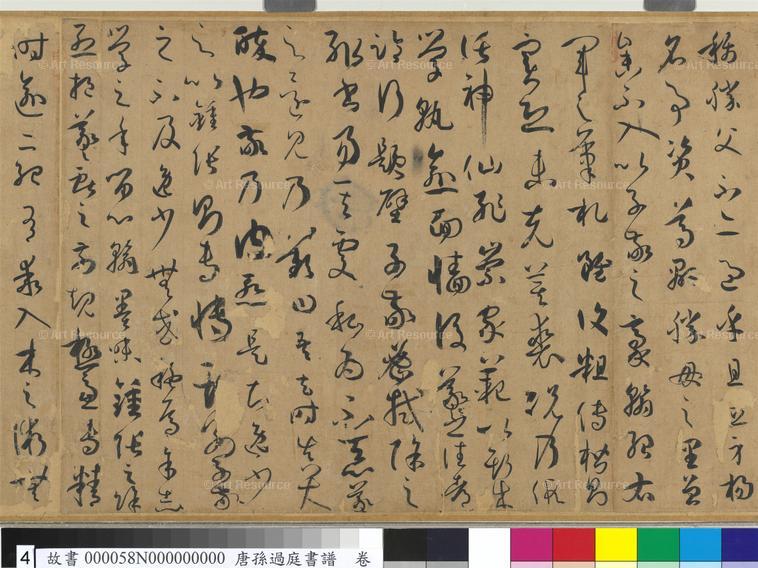 稱勝父不亦過乎且立身揚
名事資尊顯勝母之里曾
參不入以子敬之豪翰紹右
軍之筆札雖復粗傳楷則
實恐未克箕裘況乃假
託神仙恥崇家範以斯成
學孰愈面牆後羲之往都
臨行題壁子敬密拭除之
輒書易其處私為不惡羲
之還見乃歎曰吾去時真大
醉也敬乃內慚是知逸少
之比鍾張則專博斯別子敬
之不及逸少無或疑焉余志
學之年留心翰墨味鍾張之餘
烈挹羲獻之前規極慮專精
時逾二紀有乖入木之術無
4 故書 000058N000000000 唐孫過庭書譜 卷
© Art Resource